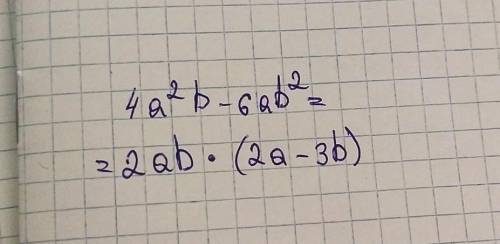 4a²b - 6ab² =
= 2ab · (2a - 3b)